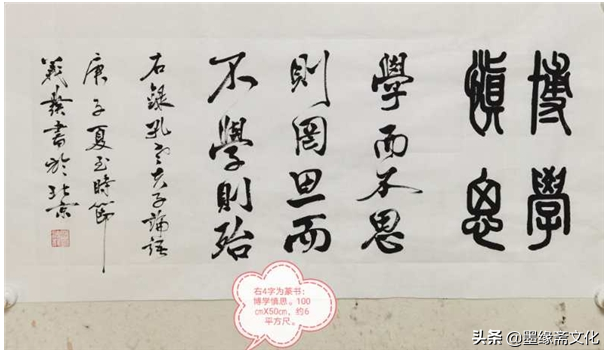 博學
慎思
學而不思
則罔思而
不學則殆
右錄孔老夫子論語
庚子夏至時節
書於北京
右4字为篆书：
博学慎思。100
㎝X50㎝，约6
平方尺。
头条 @墨缘斋文化